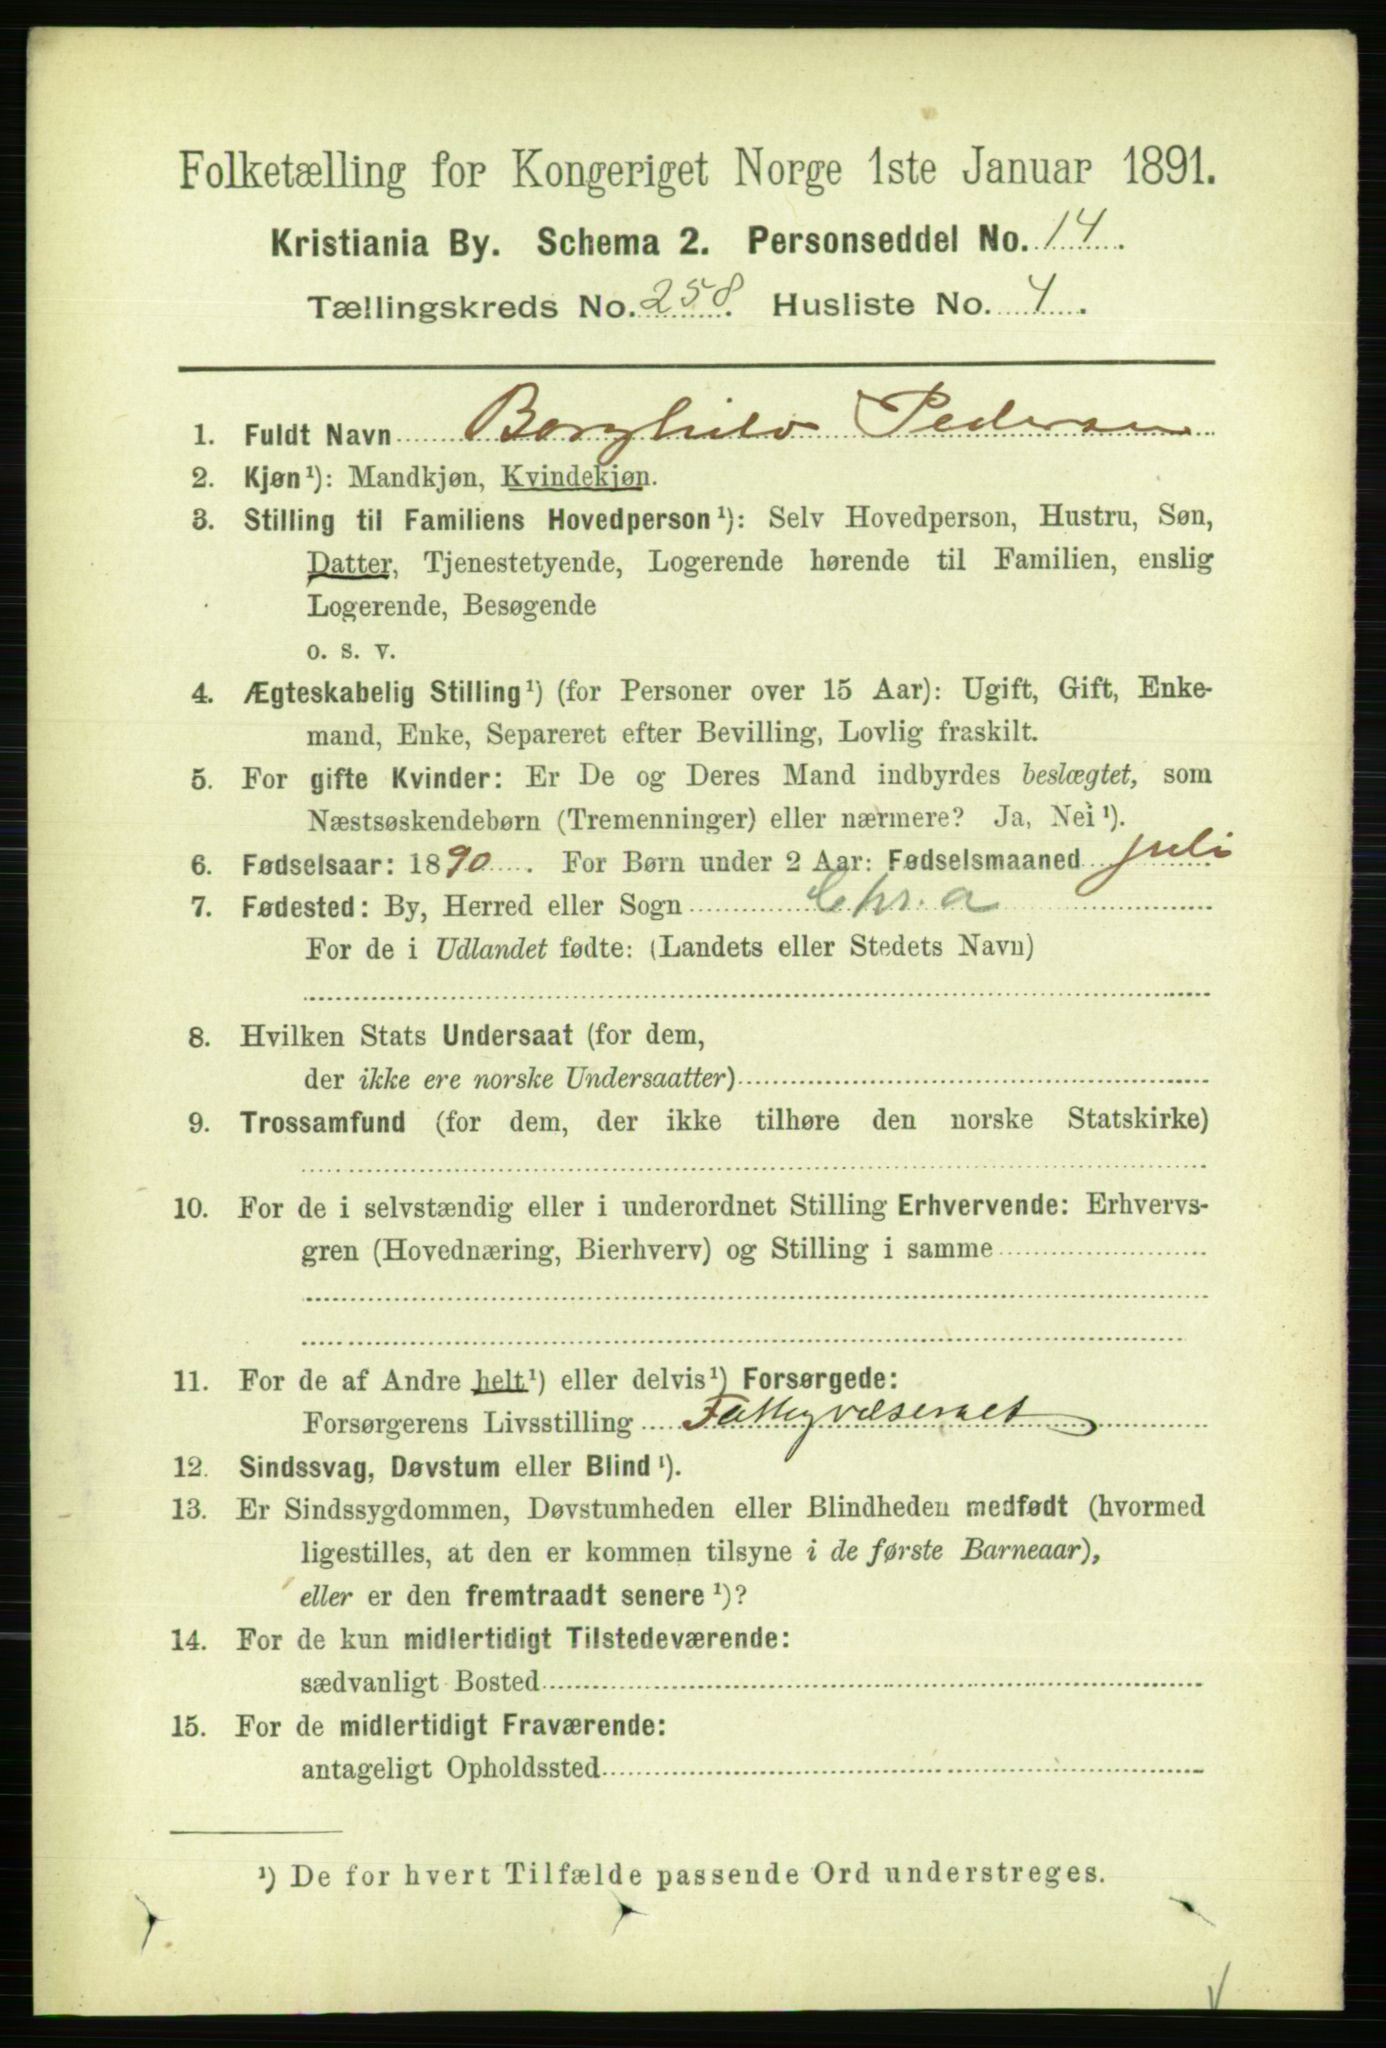 Folketælling for Kongeriget Norge 1ste Januar 1891.
Kristiania By. Schema 2. Personseddel No. 14.
Tællingskreds No. 258. Husliste No. 4.
1. Fuldt Navn Borghild Pedersen
2. Kjøn¹): Mandkjøn, Kvindekjøn.
3. Stilling til Familiens Hovedperson¹): Selv Hovedperson, Hustru, Søn,
Datter, Tjenestetyende, Logerende hørende til Familien, enslig
Logerende, Besøgende
o. s. v.
4. Ægteskabelig Stilling¹) (for Personer over 15 Aar): Ugift, Gift, Enke-
mand, Enke, Separeret efter Bevilling, Lovlig fraskilt.
5. For gifte Kvinder: Er De og Deres Mand indbyrdes beslægtet, som
Næstsøskendebørn (Tremenninger) eller nærmere? Ja, Nei¹).
6. Fødselsaar: 1890. For Børn under 2 Aar: Fødselsmaaned juli
7. Fødested: By, Herred eller Sogn Chr.a
For de i Udlandet fødte: (Landets eller Stedets Navn)
8. Hvilken Stats Undersaat (for dem,
der ikke ere norske Undersaatter)
9. Trossamfund (for dem, der ikke tilhøre den norske Statskirke)
10. For de i selvstændig eller i underordnet Stilling Erhvervende: Erhvervs-
gren (Hovednæring, Bierhverv) og Stilling i samme
11. For de af Andre helt¹) eller delvis¹) Forsørgede:
Forsørgerens Livsstilling Fattigvæsenet
12. Sindssvag, Døvstum eller Blind¹).
13. Er Sindssygdommen, Døvstumheden eller Blindheden medfødt (hvormed
ligestilles, at den er kommen tilsyne i de første Barneaar),
eller er den fremtraadt senere¹)?
14. For de kun midlertidigt Tilstedeværende:
sædvanligt Bosted
15. For de midlertidigt Fraværende:
antageligt Opholdssted
¹) De for hvert Tilfælde passende Ord understreges.